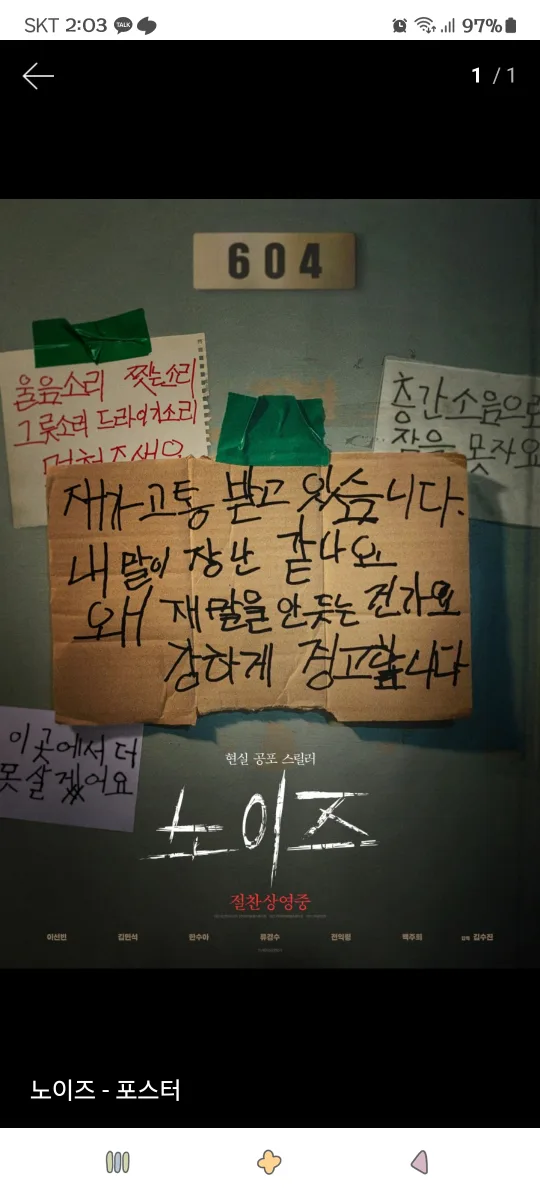 SKT 2:03 TALK 97%
1 / 1
604
울음소리 찢는소리
그릇소리 드라이기소리
멈춰주세요
층간소음으로
잠을 못자요
제가 고통 받고 있습니다.
내 말이 장난 같나요
왜 제 말을 안 듯는 건가요
강하게 경고합니다
이곳에서 더
못살겠어요
현실 공포 스릴러
노이즈
절찬상영중
이선빈 김민석 한수아 류경수 전익령 백주희 감독 김수진
노이즈 - 포스터